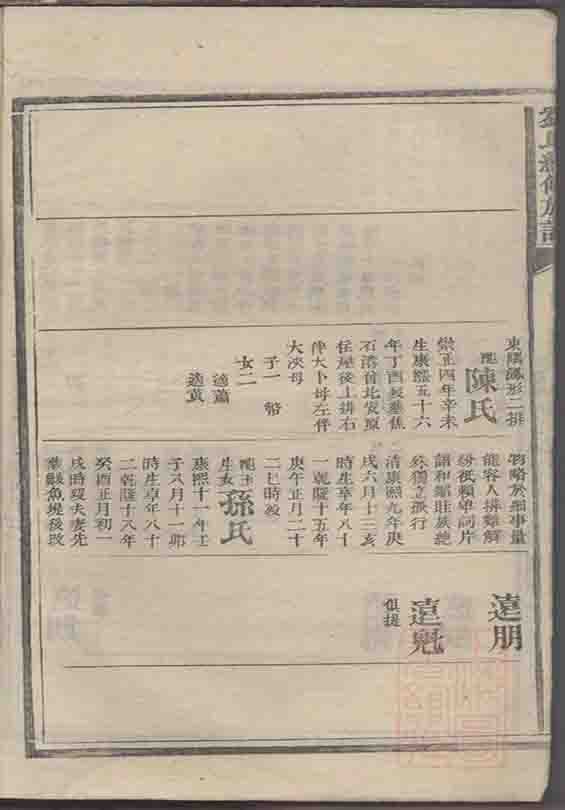 劉氏續修族譜
東隅鳳形二排
配陳氏
崇正四年辛未
生康熙五十六
年丁酉歿葬焦
石 北安原
任屋後上排右
伴大卜母左伴
大浹母
子一 幣
女二
適蕭
適黃
物略於細事量
能容人排難解
紛祇賴單詞片
語和鄰 族總
於獨立孤行
清康熙九年庚
戌六月十三亥
時生享年八十
一乾隆十五年
庚午正月二十
二巳時歿
配 孫氏
生女
康熙十一年壬
子八月十一卯
時生享年八十
二乾隆十八年
癸酉正月初一
戌時歿夫妻先
葬 魚境後改
遠朋
遠魁
俱提